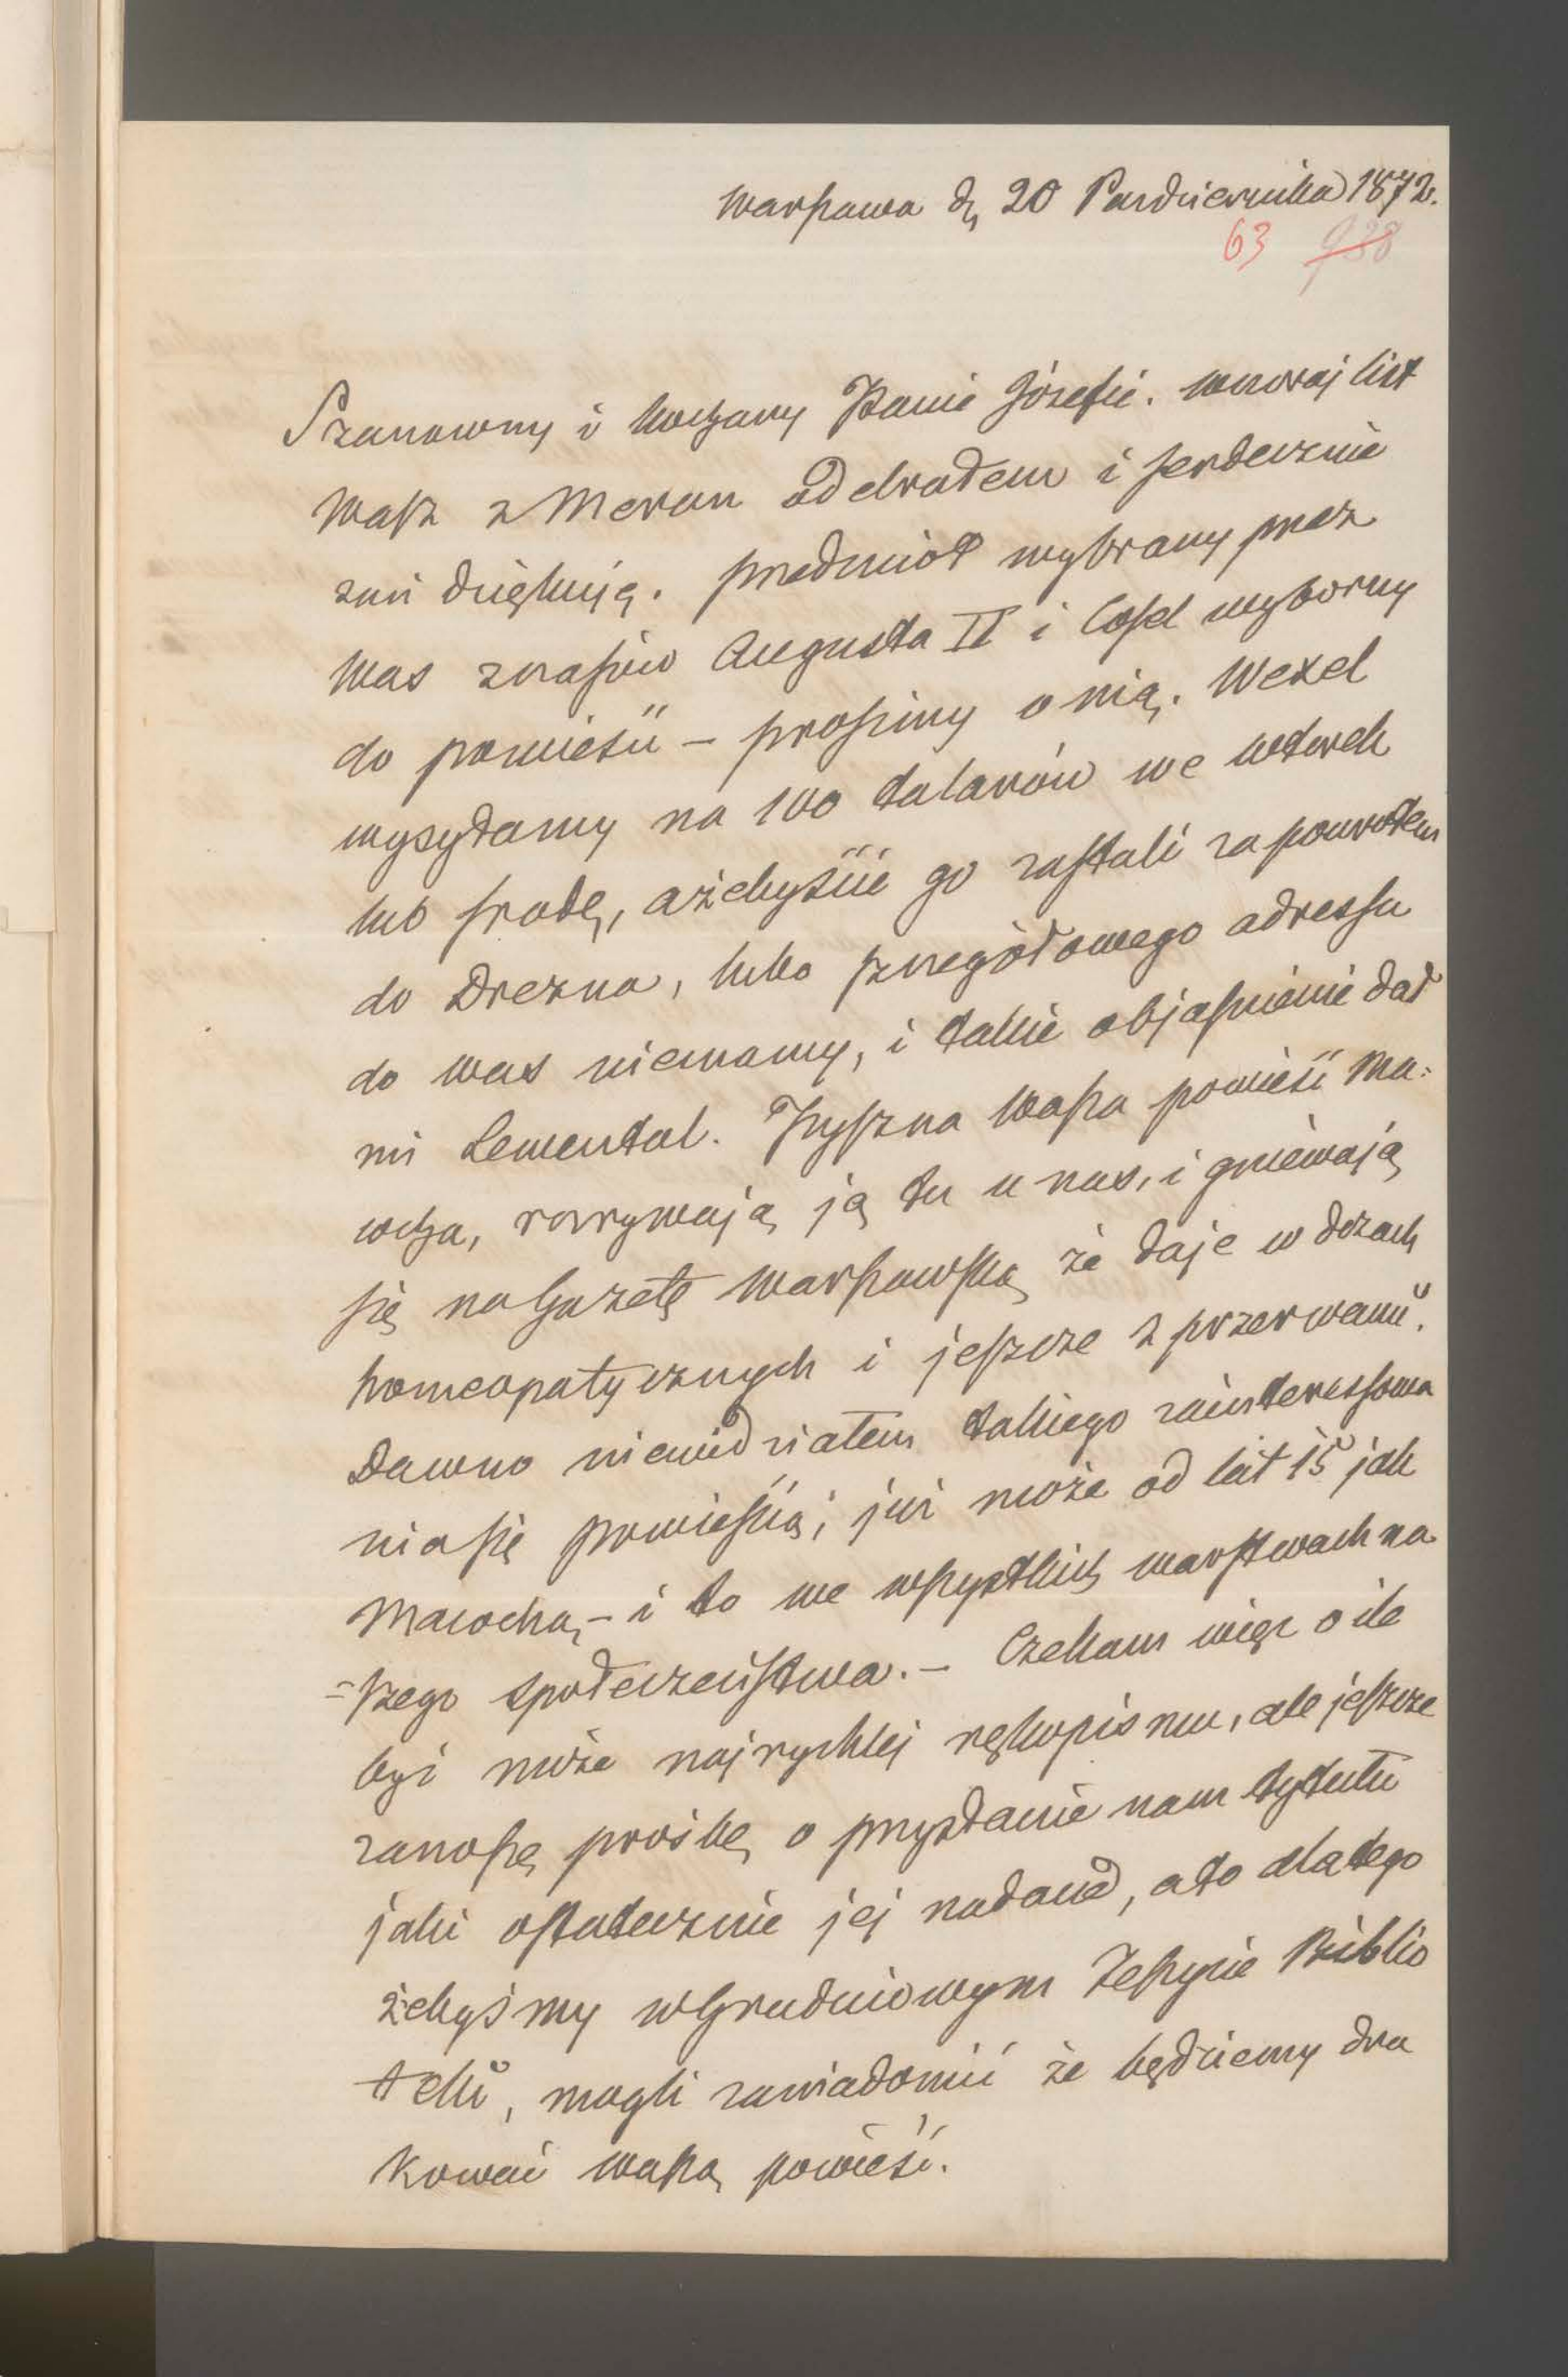 Warszawa d, 20 Pazdziernika 1872.
63 938
Szanowny i kochany Panie Józefie. wczoraj list
Wasz z Meran odebrałem i serdecznie
zań dziękuję. przedmiot wybrany przez
Was z czasów Augusta II i Cosel wyborny
do powieści – prosimy o nią. Wexel
wysyłamy na 100 talarów we wtorek
lub środę, ażebyście go zastali za powrotem
do Drezna, lubo szczegółowego adressu
do was niemamy, i takie objaśnienie dał
mi Lewental. Pyszna Wasza powieść Ma:
cocha, rozrywają ją tu u nas, i gniewają
się na Gazetę Warszawską że daje w dozach
homeopatycznych i jeszcze z przerwami.
Dawno niewidziałem takiego zainteressowa
nia się powieścią; już może od lat 15 jak
Macochą, – i to we wszystkich warstwach na
=szego społeczeństwa. – Czekam więc o ile
być może najrychlej rękopismu, ale jeszcze
zanoszę prośbę o przysłanie nam tytułu
jaki ostatecznie jej nadacie, a to dlatego
żebyśmy w Grudniowym Zeszycie Biblio
teki, mogli zawiadomić że będziemy dru
kować waszą powieść.